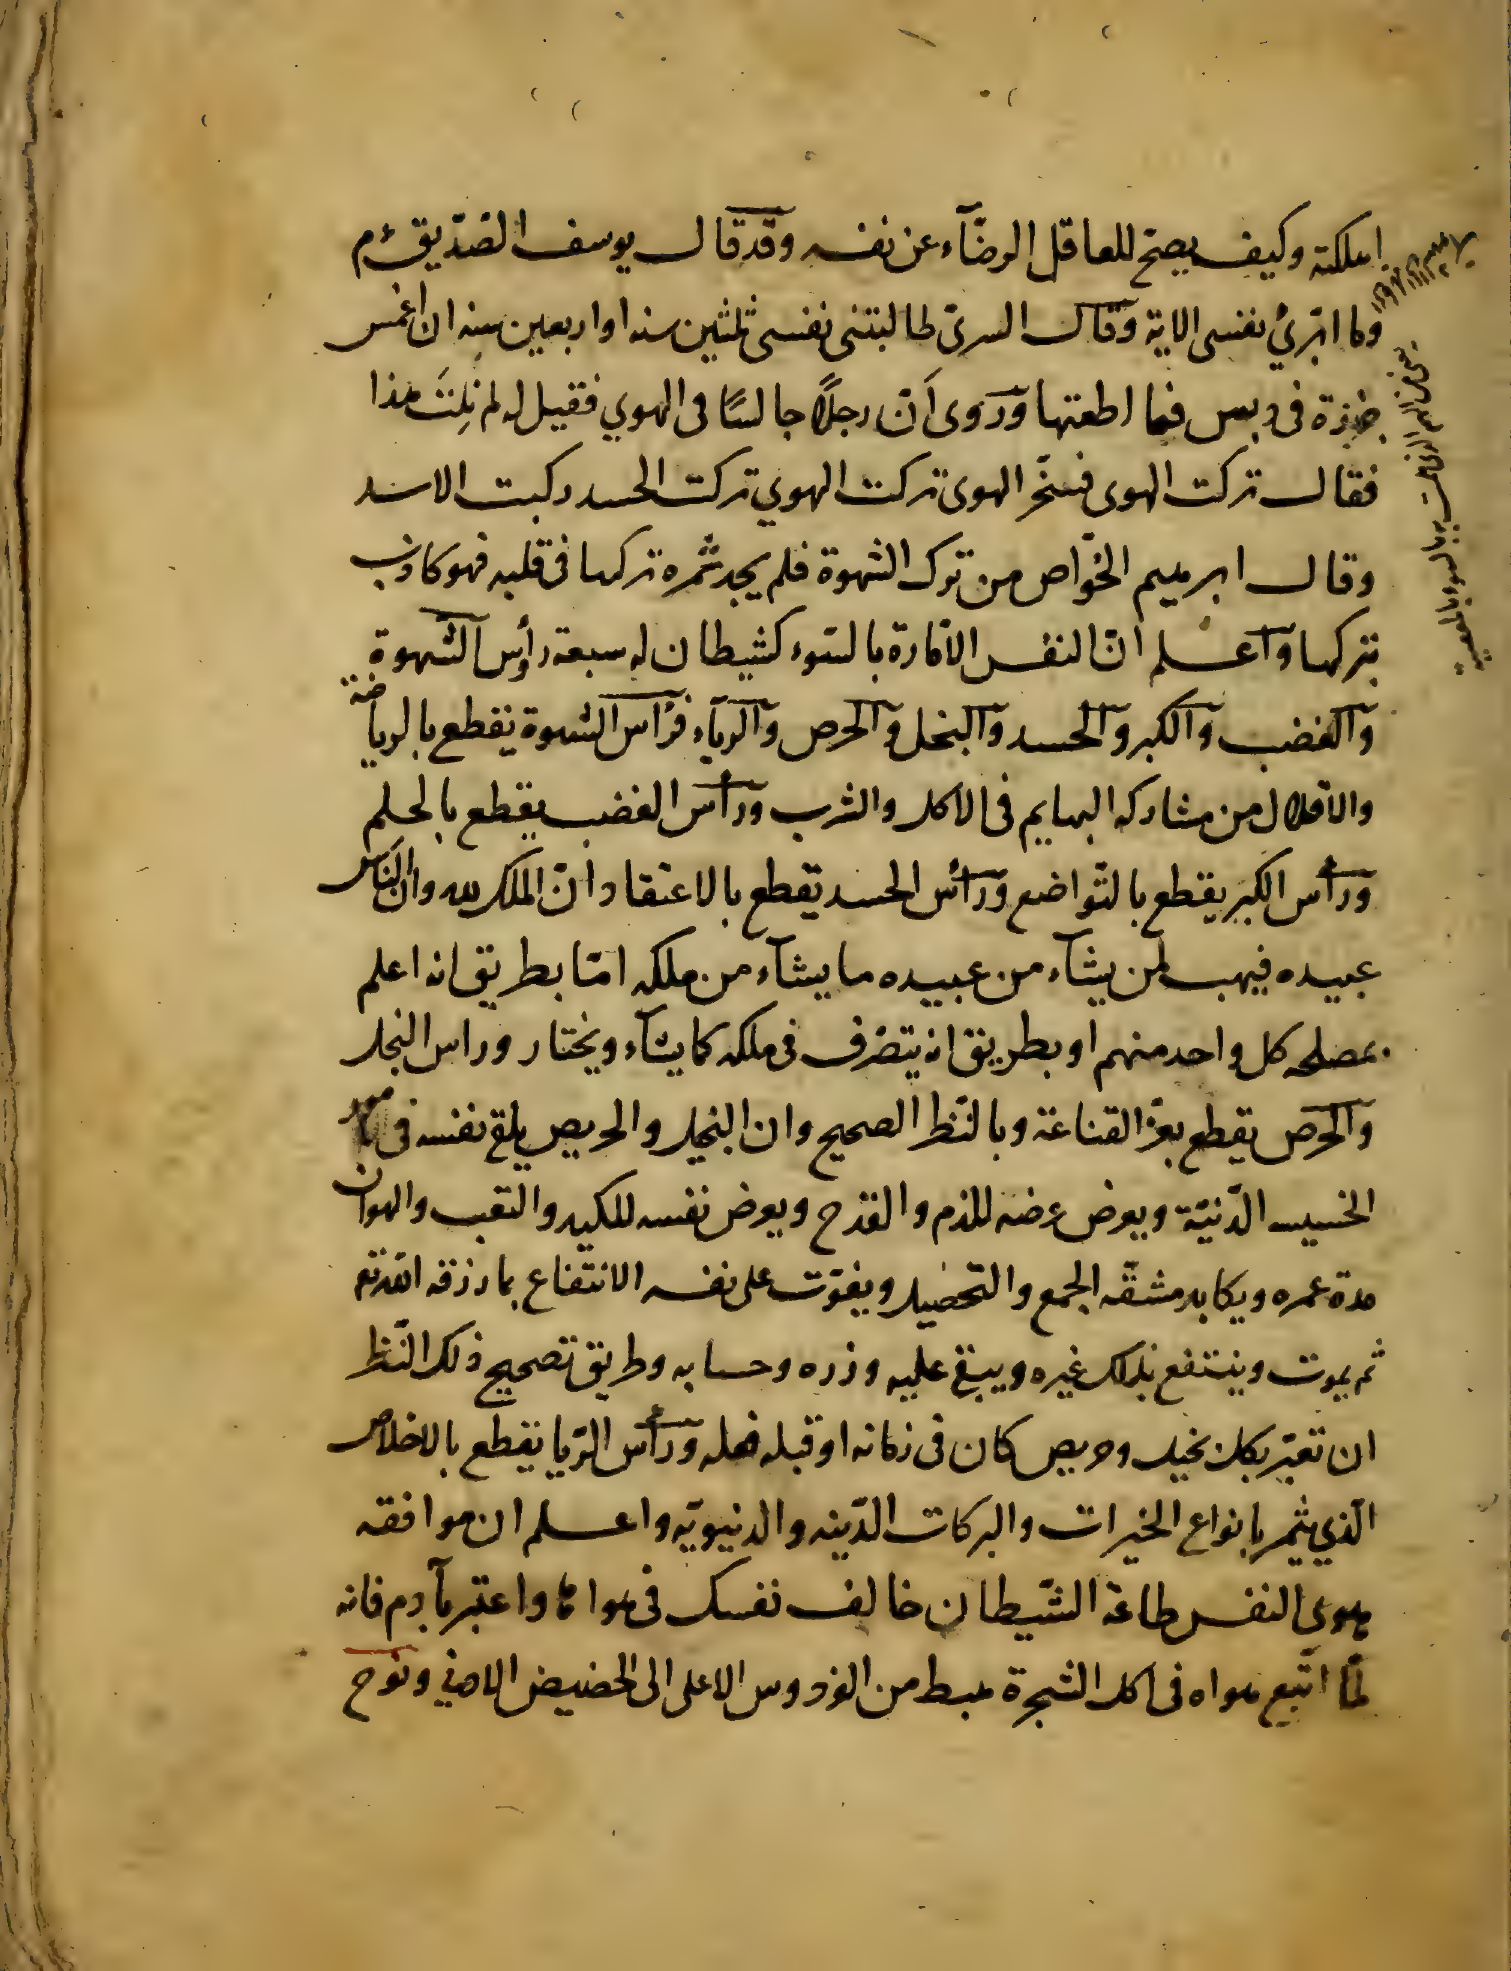 اهلكته وكيف يصحّ للعاقل الرضآء عن نفسه وقد قال يوسف الصّدّيق ءم
وما ابرّئ نفسى الاية وقال السرىّ طالبتنى نفسى ثلثين سنه او اربعين سنه ان اغمس
جزرة فى دبس فما اطعتها وروى اَنّ رجلاً جالسًا فى الهوي فقيل له لم نِلتَ هذا
فقال تركت الهوى فسخّر الهوى تركت الهوي تركت الحسد ركبت الاسد
وقال ابرهيم الخوّاص من ترك الشهوة فلم يجد ثمره تركها فى قلبه فهو كاذب
بتركها وآعلم انّ النفس الامّارة بالسّوء كشيطان له سبعة رأوس الشّهوة
والغضب والكبر والحسد والبخل والحرص والريآء فرأس الشهوة يقطع بالرياضة
والاقلال من مشاركه البهايم فى الاكل والشرب ورأس الغضب يقطع بالحلم
ورأس الكبر يقطع بالتّواضع ورأس الحسد يقطع بالاعتقاد انّ الملك لله وان النّاس
عبيده فيهب لمن يشآء من عبيده ما يشآء من ملكه امّا بطريق انه اعلم
بمصلحه كل واحد منهم او بطريق انه يتصرّف فى ملكه كما يشآء ويختار وراس البخل
والحرص يقطع بعزّ القناعة وبالنّظر الصحيح وان البخيل والحريص يلقى نفسه فى
الخسيسه الدّنيّة ويعرض عرضه للذم والقدح ويعرض نفسه للكيد والتعب والهوان
مدة عمره ويكابد مشقّه الجمع والتحصيل ويفوّت على نفسه الانتفاع بما رزقه الله تع
ثم يموت وينتفع بذلك غيره ويبقى عليه وزره وحسابه وطريق تصحيح ذلك النّظر
ان تعبّر بكل بخيل وحريص كان فى زمانه او قبله فعله ورأس الرّيا يقطع بالاخلاص
الّذي يثمر بانواع الخيرات والبركات الدّينه والدنيويّه واعلم ان موافقه
هوى النفس طاعة الشّيطان خالف نفسك فى هواها واعتبر بآدم فانه
لمّا اتّبع هواه فى اكل الشجرة هبط من الفردوس الاعلى الى الحضيض الادنى ونوح